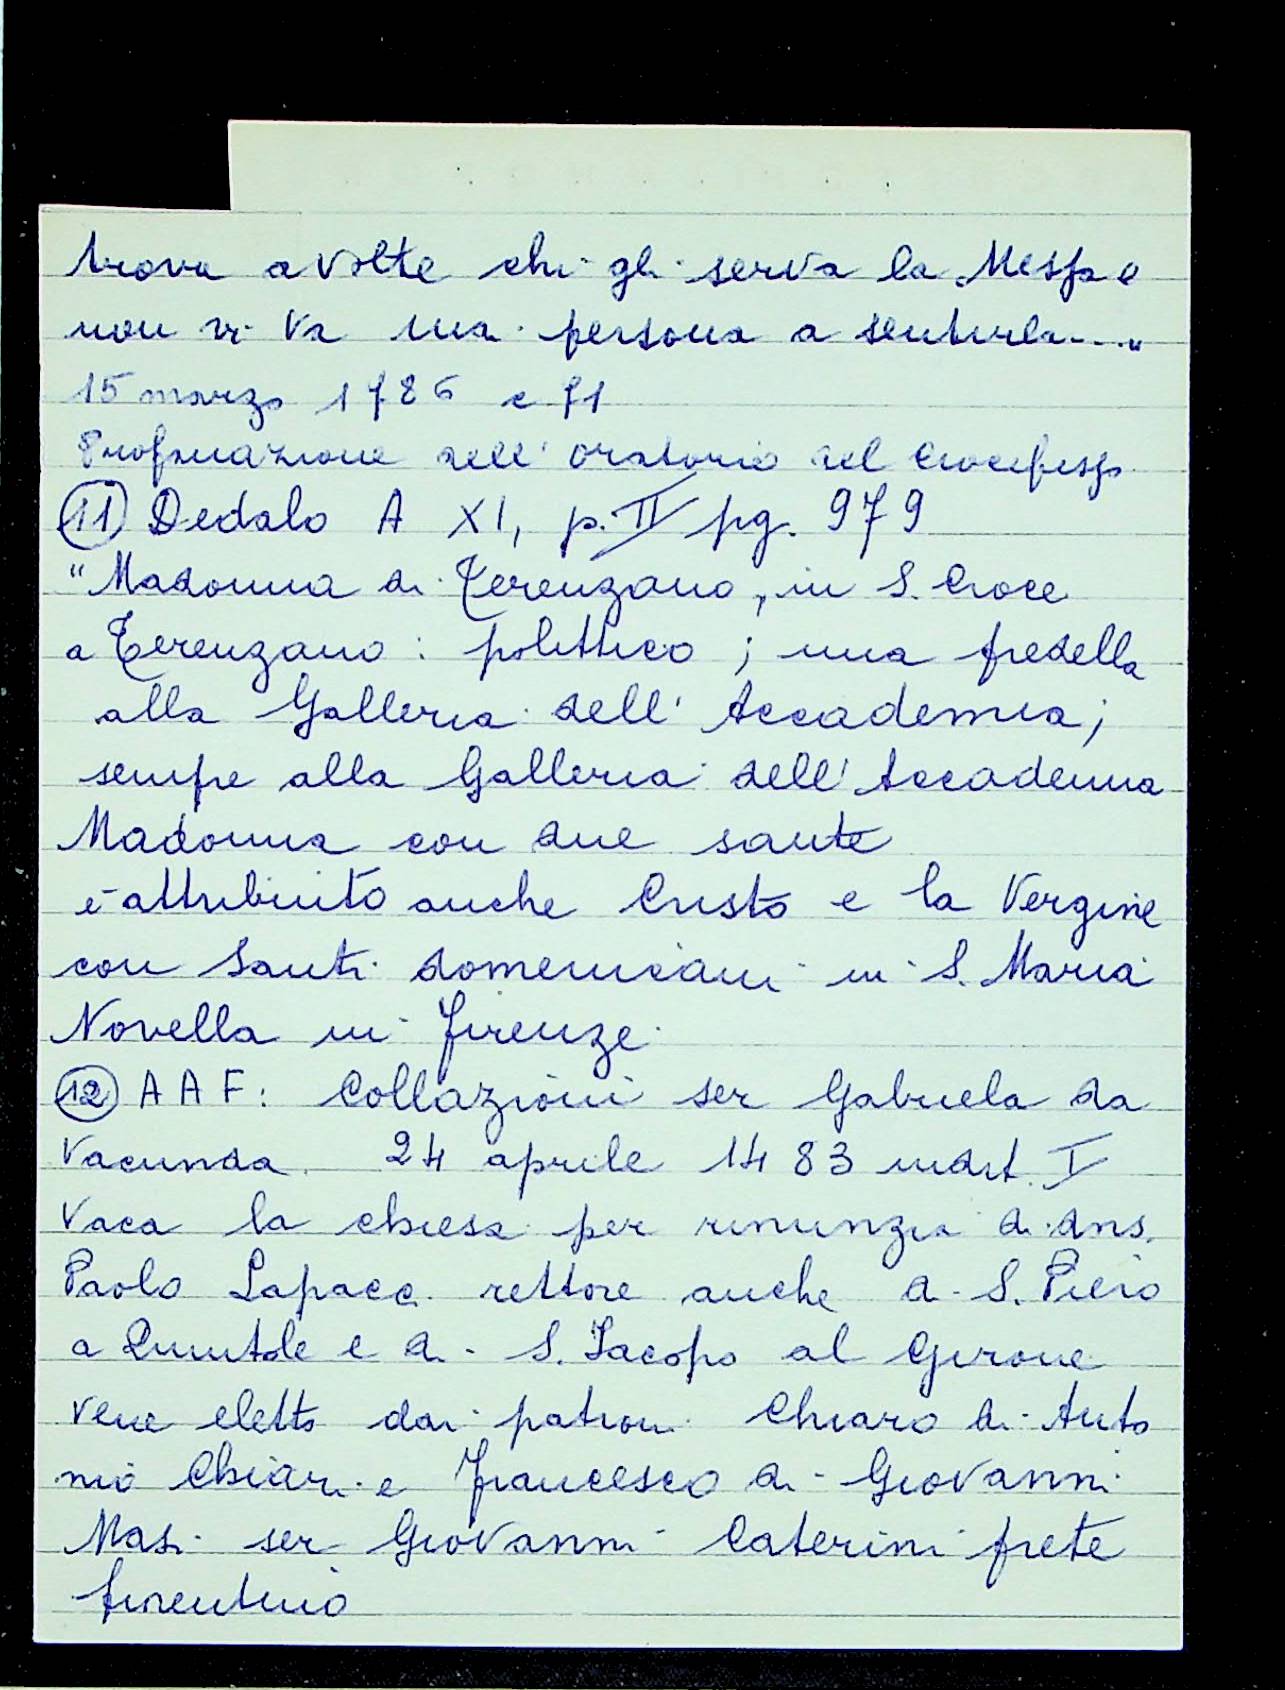 trova a volte chi gli serva la Messa e
non vi va una persona a sentirla...."
15 marzo 1786 c 71
Profanazione dell' oratorio del Crocefisso
(11) Dedalo A XI, p. II pg. 979
"Madonna di Terenzano, in S. Croce
a Terenzano: polittico; una predella
alla Galleria dell' Accademia;
sempre alla Galleria dell' Accademia
Madonna con due sante
è attribuito anche Cristo e la Vergine
con Santi domenicani in S. Maria
Novella in Firenze
(12) A A F: Collazioni ser Gabriela da
Vacunda 24 aprile 1483 indit. I
Vaca la chiesa per rinunzia di dns.
Paolo Lapacci rettore anche di S. Piero
a Quintole e di S. Jacopo al Girone
vene eletto dai patroni Chiaro di Anto
nio Chiari e Francesco di Giovanni
Masi ser Giovanni Caterini prete
fiorentino